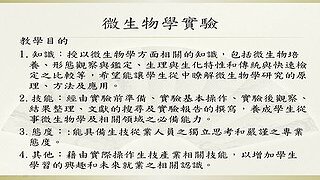 微生物學實驗
教學目的
1. 知識：授以微生物學方面相關的知識，包括微生物培
養、形態觀察與鑑定、生理與生化特性和傳統與快速檢
定之比較等，希望能讓學生從中瞭解微生物學研究的原
理、方法及應用。
2. 技能：經由實驗前準備、實驗基本操作、實驗後觀察、
結果整理、文獻的搜尋及實驗報告的撰寫，養成學生從
事微生物學及相關領域之必備能力。
3. 態度：:能具備生技從業人員之獨立思考和嚴謹之專業
態度。
4. 其他：藉由實際操作生技產業相關技能，以增加學生
學習的興趣和未來就業之相關認識。